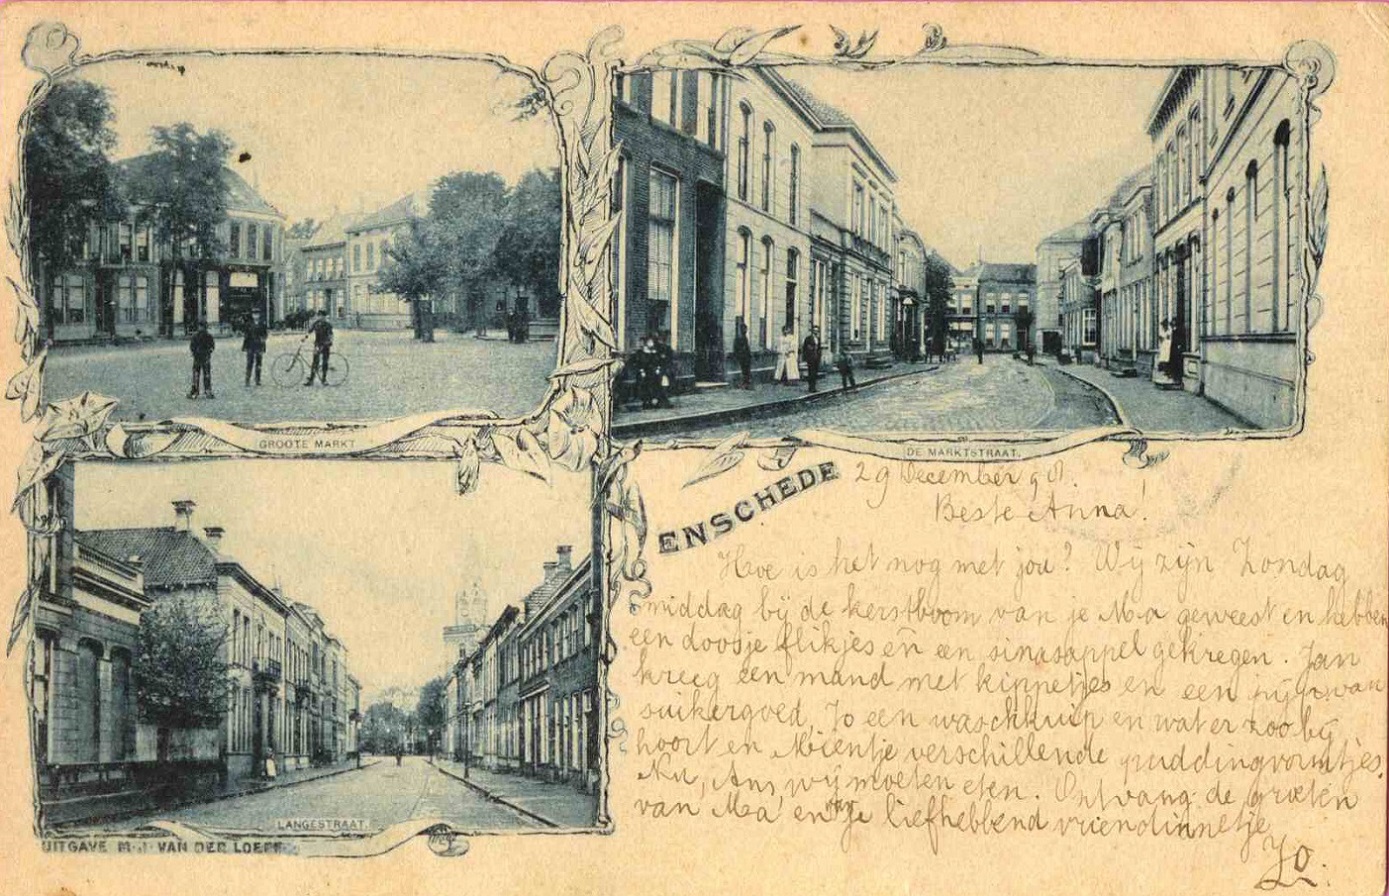 GROOTE MARKT
DE MARKTSTRAAT.
LANGESTRAAT.
UITGAVE M. J. VAN DER LOEFF
ENSCHEDE
29 December 901.
Beste Anna!
Hoe is het nog met jou? Wij zijn Zondag
middag bij de kerstboom van je Ma geweest en hebben
een doosje flikjes en een sinasappel gekregen. Jan
kreeg een mand met kippetjes en een pijp van
suikergoed, Jo een waschkuip en wat er zoo bij
hoort en Mientje verschillende puddingvormtjes.
Nu, Ans, wij moeten eten. Ontvang de groeten
van Ma en van je liefhebbend vriendinnetje
Jo.